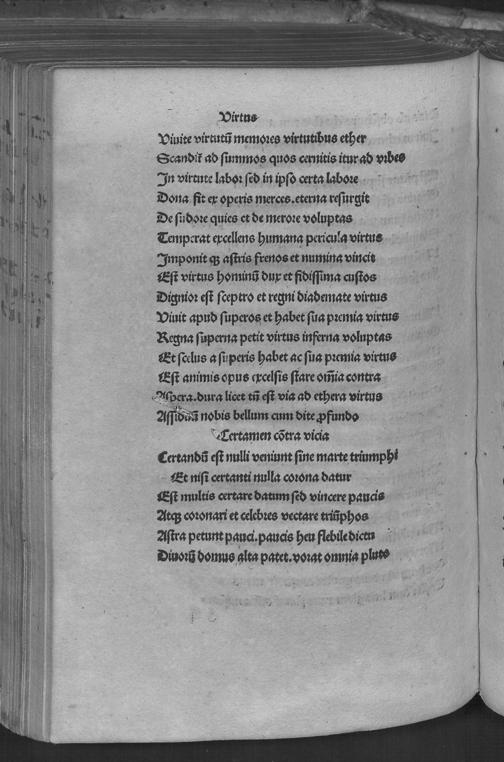 Virtus
Viuite virtutū memores virtutibus ether
Scandit̄ ad summos quos cernitis itur ad vibes
In virtute labor sed in ipso certa labore
Dona fit ex operis merces. eterna resurgit
De sudore quies et de merore voluptas
Temperat excellens humana pericula virtus
Imponit qꝫ astris frenos et numina vincit
Est virtus hominū dux et fidissima custos
Dignior est sceptro et regni diademate virtus
Viuit apud superos et habet sua premia virtus
Regna superna petit virtus inferna voluptas
Et scelus a superis habet ac sua premia virtus
Est animis opus excelsis stare om̄ia contra
Aspera. dura licet tn̄ est via ad ethera virtus
Assiduū nobis bellum cum dite ꝓfundo
Certamen cōtra vicia
Certandū est nulli veniunt sine marte triumphi
Et nisi certanti nulla corona datur
Est multis certare datum sed vincere paucis
Atqꝫ coronari et celebres vectare triūphos
Astra petunt pauci. paucis heu flebile dictu
Diuorū domus alta patet. vorat omnia pluto